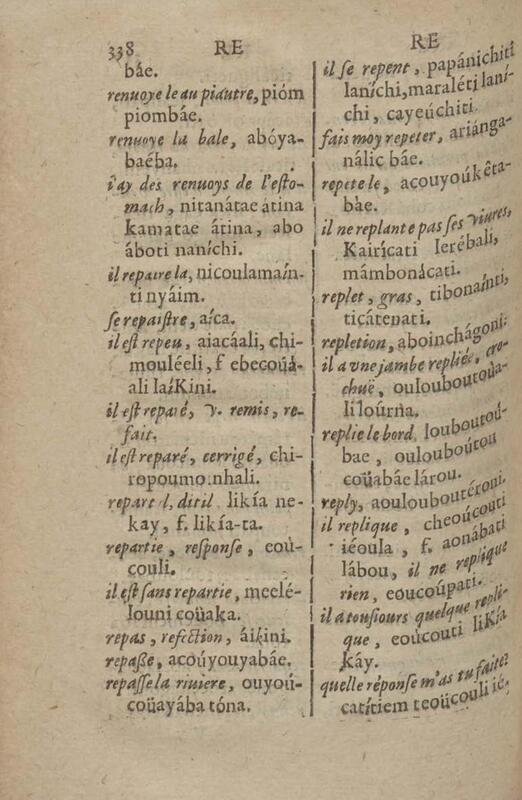 338 RE
báe.
renuoye le au piautre, pióm
piombáe.
renuoye la bale, abóya-
baéba.
i'ay des renuoys de l'esto-
mach, nitanátae átina
kamatae átina, abo
áboti naníchi.
il repaire la, nicoulamaín-
ti nyáim.
se repaistre, aíca.
il est repeu, aiacáali, chi-
mouléeli, f ebecoüá-
ali laíKini.
il est reparé, v. remis, re-
fait.
il est reparé, cerrigé, chi-
ropoumoinhali.
repart il, dit il likía ne-
kay, f. likía-ta.
repartie, response, eoú-
couli.
il est sans repartie, meelé-
louni coüaka.
repas, refection, áikini.
repasse, acoúyouyabáe.
repasse la riuiere, ouyoú-
coüayába tóna.
RE
il se repent, papánichiti
laníchi, maraléti laní-
chi, cayeúchiti
fais moy repeter, ariánga-
nálic báe.
repete le, acouyoúkêta-
báe.
il ne replante pas ses viures,
Kairícati Ierébali,
mámbonicati.
replet, gras, tibonaínti,
ticátenati.
repletion, aboinchágoni:
il a vne jambe repliée, cro-
chuë, oulouboutoüa-
li loúrna.
replie le bord, louboutoú-
bae, ouloubóutou
coüabáe lárou.
reply, aouloubouteroni.
il replique, cheoúcouti
iéoula, f. aonábati
lábou, il ne replique
rien, eoucoúpati.
il a tousiours quelque repli-
que, eoúcouti liKía
káy.
quelle réponse m'as tu faite?
catítiem teoücouli ié,